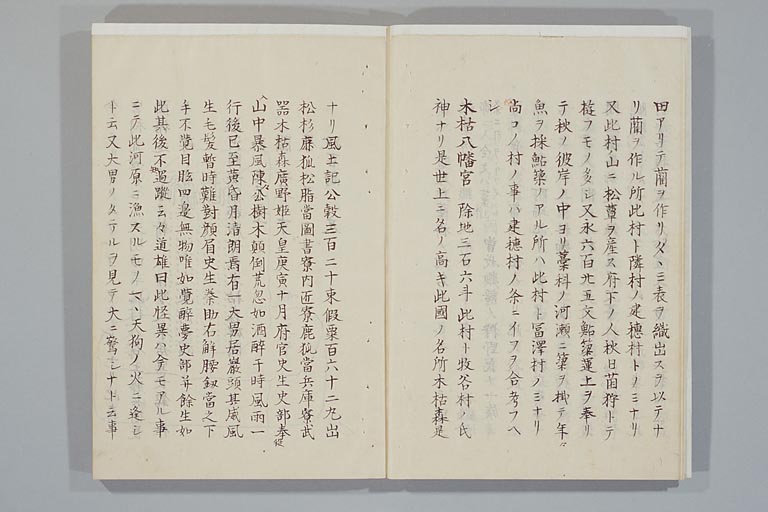 田アリテ藺ヲ作リタヽミ表ヲ織出スヲ以テナ
リ藺ヲ作ル所此村ト隣村ノ建穂村トノミナリ
又此村山ニ松蕈ヲ産ス府下ノ人秋日茵狩トテ
徒フモノ多シ又永六百廿五文鮎簗運上ヲ奉リ
テ秋ノ彼岸ノ中ヨリ藁科ノ河瀬ニ簗ヲ掛テ年々
魚ヲ採鮎簗ノアル所ハ此村ト冨澤村ノミナリ
尚コノ村ノ事ハ建穂村ノ条ニイフヲ合考フヘ
シ
木枯八幡宮 除地三石六斗此村ト牧谷村ノ氏
神ナリ是世上ニ名ノ高キ此國ノ名所木枯森是
ナリ風土記公穀三百二十束假粟百六十二丸出
松杉麻狐松脂當圖書寮内匠寮鹿狐當兵庫寮武
器木枯森廣野姫天皇庚寅十月府官史生史部奉從
山中暴風陳公樹木顛倒荒忽如酒醉干時風雨一
行後已至黄昏月清朗焉有一大男居巖頭其威風
生毛髮暫時難對顔眉史生秦助右解腰釼當之下
手不覚目眩四邊無物唯如覺醉夢史部等餘生如
此其後不追蹤云々道雄曰此怪異ハ今モアル事
ニテ此河原ニ漁スルモノ一ハ天狗ノ火ニ逢シ
ト云又大男ノタテルヲ見テ大ニ驚シナト云事